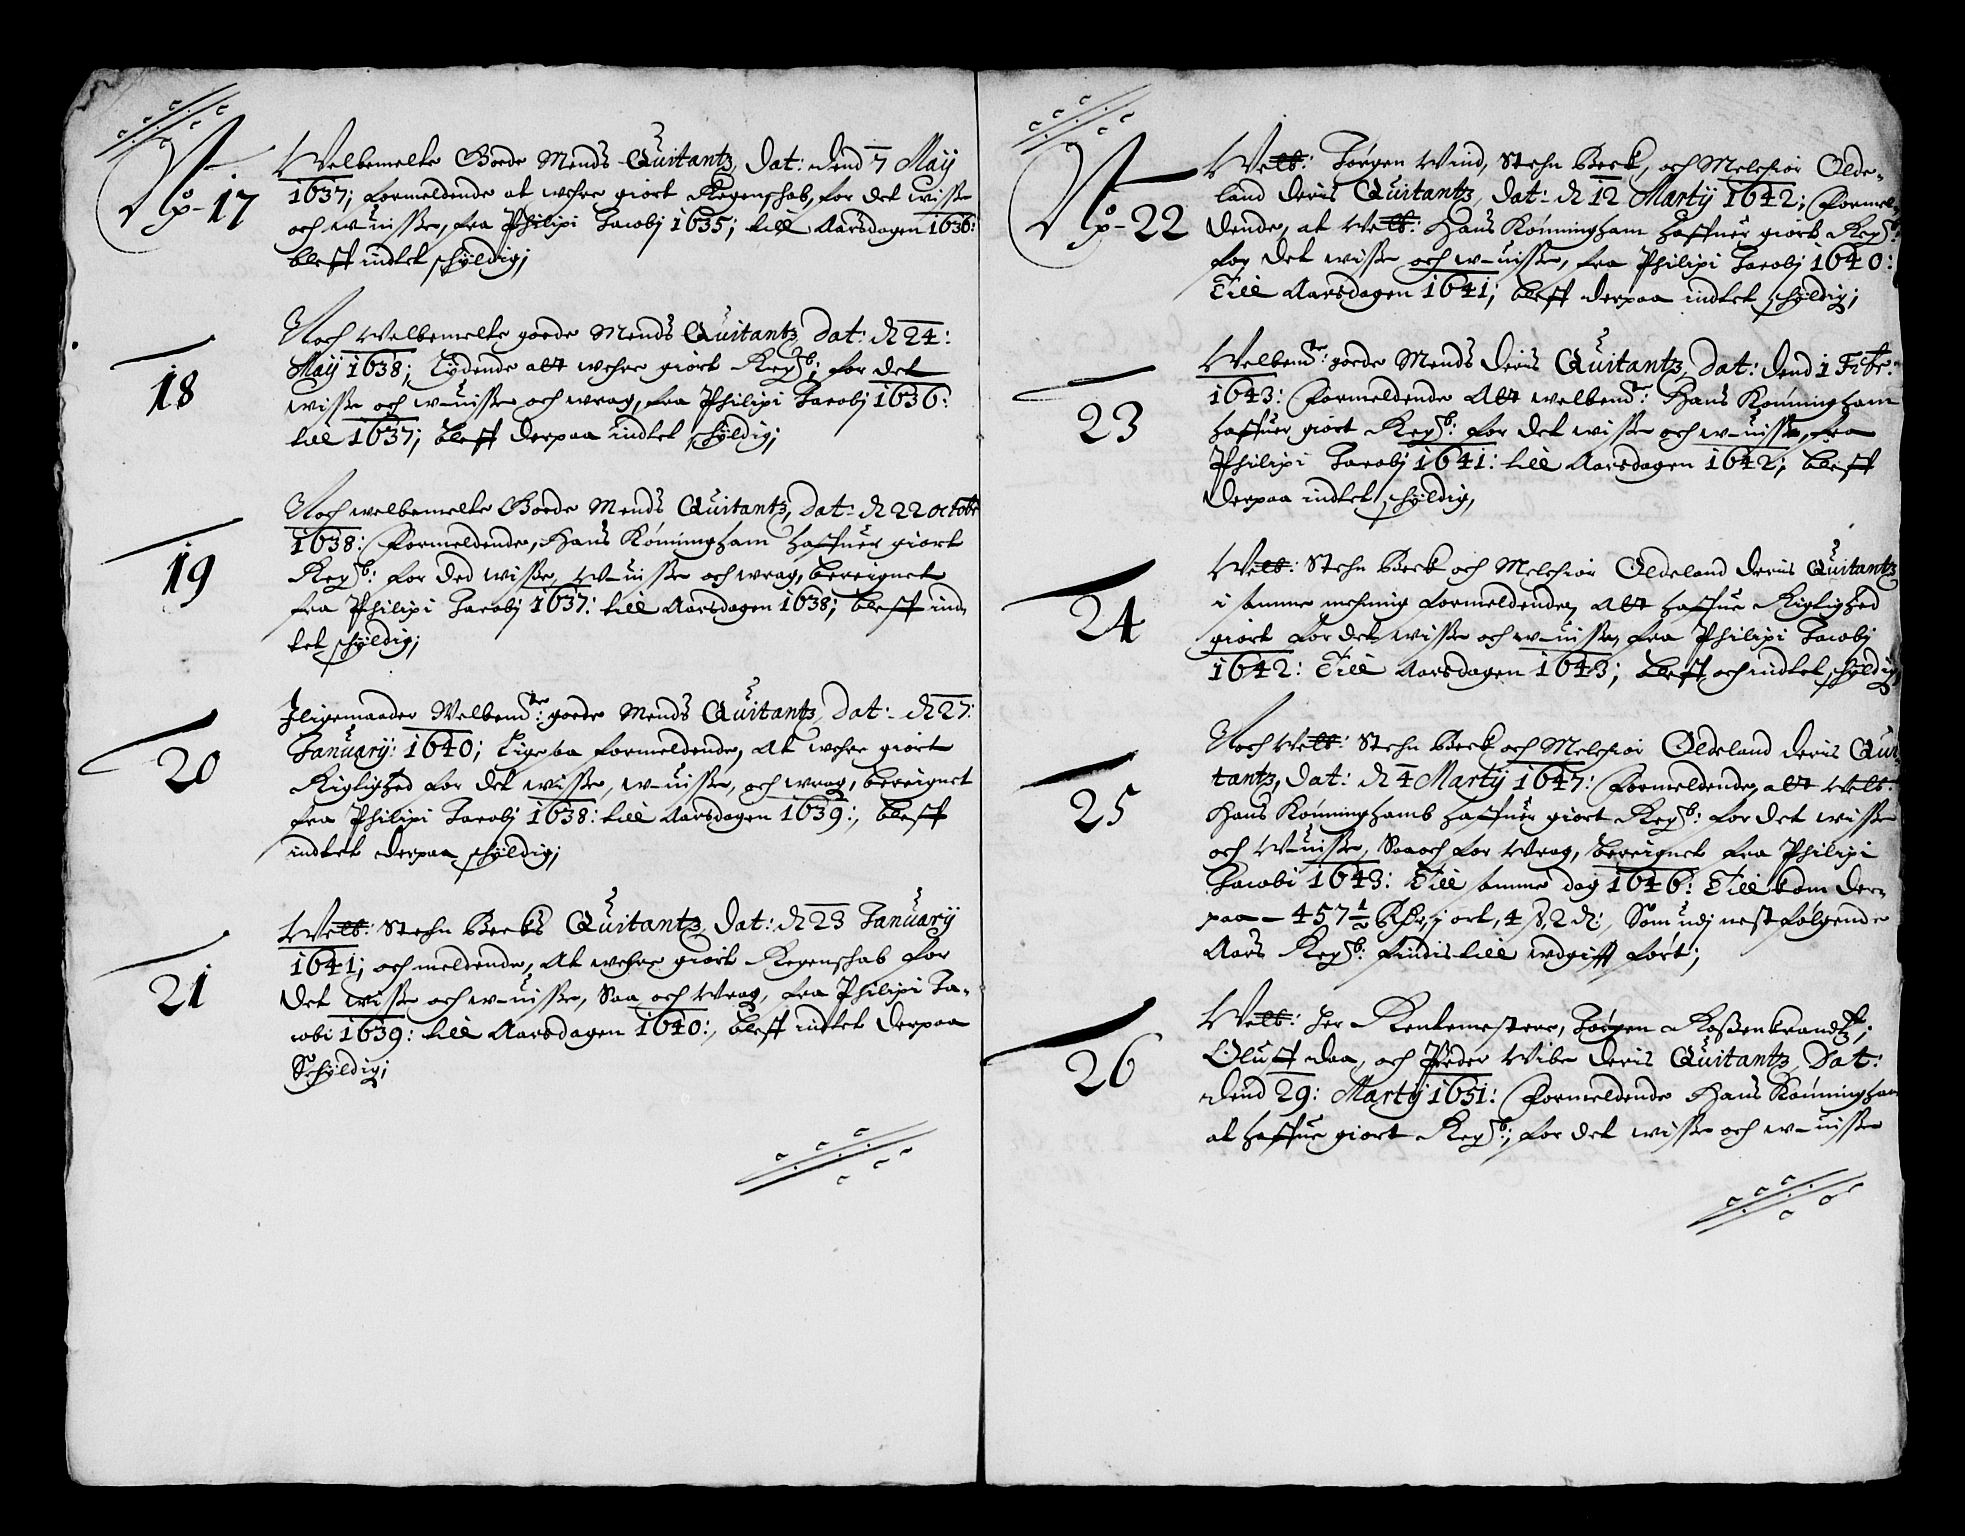 No 17
Welbemelte Goede Mends Quitantz, Dat: dend 7 Maÿ
1637; formeldende at were giort Regenschab, for det wisse
och w-uisse, fra Philipi Jacobj 1635; till Aarsdagen 1636:
bleff indtet schÿldig;
18
Noch welbemelte goede Mends Quitantz, Dat: dn 24:
Maÿ 1638; Lÿdende att were giort Regsb: for det
wisse och w-uisse och wrag, fra Philipi Jacobj 1636:
till 1637; bleff derpaa indtet schÿldig;
19
Noch welbemelte Goede Mends Quitantz, Dat: dn 22 octobr
1638: Formeldende, Hans Kønningham haffuer giort
Regsb: for ded wisse, w-uisse och wrag, bereignet
fra Philipi Jacobj 1637: till Aarsdagen 1638; bleff ind-
tet schÿldig;
20
Iligemaader Welbemte: goede Mends Quitantz, Dat: dn 27:
Januarÿ: 1640; Ligesaa formeldende, At were giort
Rigtighed for det wisse, w-uisse, och wrag, bereignet
fra Philipi Jacobj 1638: till Aarsdagen 1639:, bleff
indtet derpaa schÿldig;
21
Welb: Stehn Becks Quitantz, Dat: dn 23 Januarÿ
1641; och meldende, At were giort Regenschab for
det wisse och w-uisse, Saa och Wrag, fra Philipi Ja-
cobi 1639: till Aarsdagen 1640:, bleff indtet derpaa
Schÿldig;
No 22
Welb: Jørgen Wind, Stehn Beck, och Melchior Olde-
land deris Quitantz, Dat: dn 12 Martÿ 1642; Formel-
dende, at Welb: Hans Kønningham haffuer giort Regsb:
for det wisse och w-uisse, fra Philipi Jacobj 1640:
Till Aarsdagen 1641; bleff derpaa indtet schÿldig;
23
Welbemte: goede Mends deris Quitantz, Dat: dend 1 Febr:
1643: Formeldende Att welbemte: Hans Kønningham
haffuer giort Regsb: for det wisse och w-uisse, fra
Philipi Jacobj 1641: till Aarsdagen 1642; bleff
derpaa indtet schÿldig,
24
Welb: Stehn Beck och Melchior Oldeland deris Quitantz
i samme mehning formeldende, Att haffue Rigtighed
giort for det wisse och w-uisse, fra Philipi Jacobj
1642: Till Aarsdagen 1643; bleff och indtet schÿldig,
25
Noch Welb: Stehn Beck och Melchior Oldeland deris Qui-
tantz, Dat: dn 4 Martÿ 1647: Formeldende, att Welb:
Hans Kønninghamb haffuer giort Regsb: for det wisse
och W-uisse, Saa och for Wrag, bereignet fra Philipi
Jacobi 1643: Till samme dag 1646: Till kom der-
paa - 457½ Rdr, j ort, 4 ß, 2 d:, Som udj nestfølgende
Aars Regsb: findis till udgifft ført;
26
Welb: Her Rentemestere, Jørgen Rosenkrandtz;
Oluff daa, och Peder Wibe deris Quitantz, Dat:
dend 29: Martÿ 1651: Formeldende Hans Kønningham
at haffue giort Regsb:, for det wisse och w-uisse